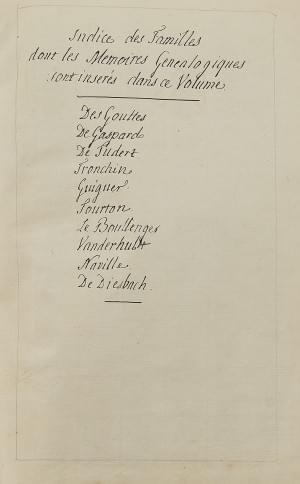 Indice des Familles
dont les Memoires Genealogiques
sont inserés dans ce Volume.
Des Gouttes
De Gaspard
De Tudert
Tronchin
Guiguer
Tourton
Le Boullenger
Vanderhulst
Naville
De Diesbach.